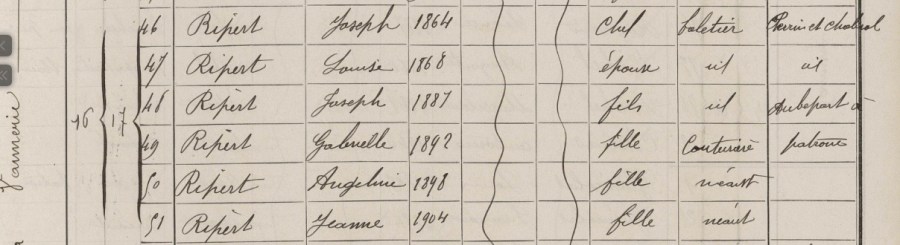 46 Ripert Joseph 1864 Chef Galetier Perrin et Chabrol
47 Ripert Louise 1868 épouse id id
48 Ripert Joseph 1887 fils id
16 17 49 Ripert Gabrielle 1892 fille Couturière patronne
50 Ripert Angeline 1898 fille néant
51 Ripert Jeanne 1904 fille néant